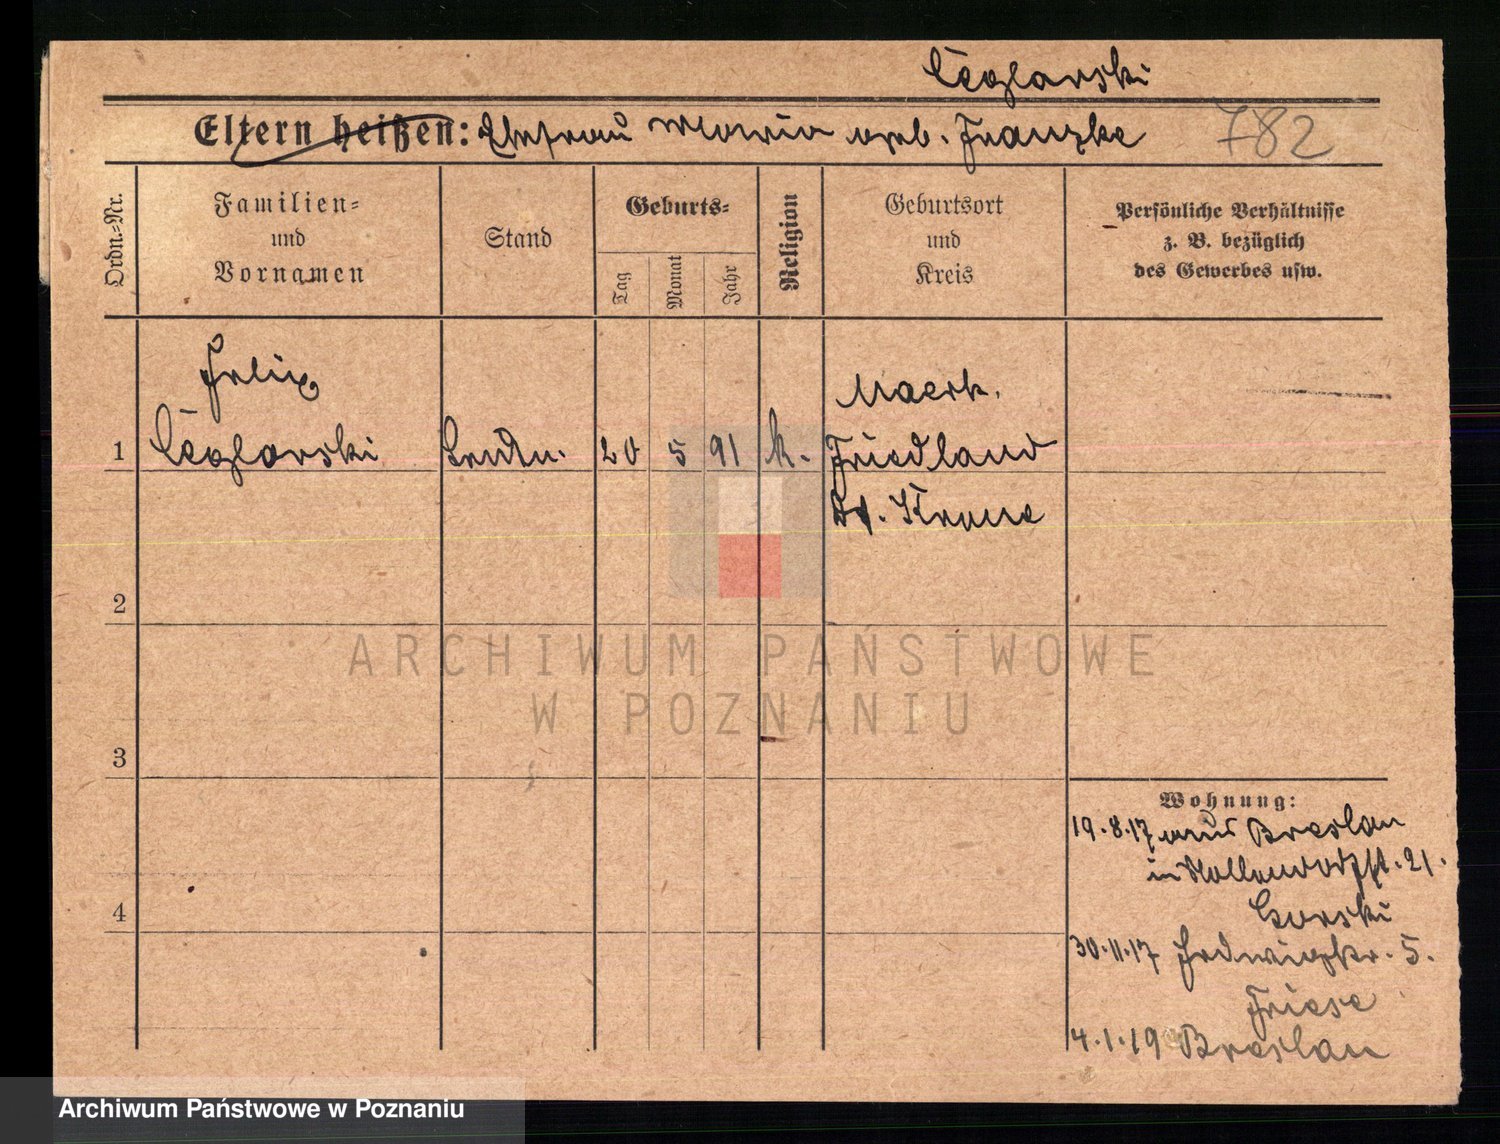 Ceglarski
Eltern heißen: Ehefrau Maria geb. Franzke 782
Ordn.-Nr.
Familien-
und
Vornamen
Stand
Geburts-
Tag
Monat
Jahr
Religion
Geburtsort
und
Kreis
Persönliche Verhältnisse
z. B. bezüglich
des Gewerbes usw.
Felix
Maerk.
1 Ceglarski 20 5 91 k. Friedland
Dt. Krone
2
ARCHIWUM PAŃSTWOWE
W POZNANIU
3
Wohnung:
19.8.17 aus Breslau
in Nollendorfst. 21.
4
Gorski
30.11.17 Hedwigstr. 5.
Friese
4.1.19 Breslau
Archiwum Państwowe w Poznaniu